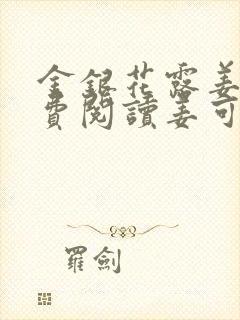 金銀花露姜
費閱讀姜可
羅劍